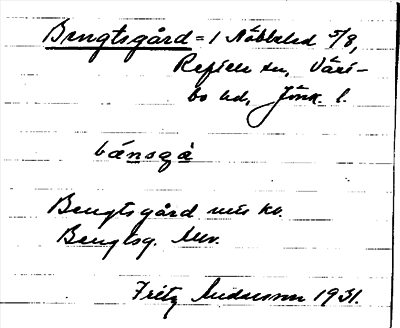 Bengtsgård = 1 Näbbeled 5/8,
Reftele sn, Väst-
bo hd, Jönk. l.
bänsgå
Bengtsgård mis kv.
Bengtsg. Mv.
Fritz Andersson 1931.